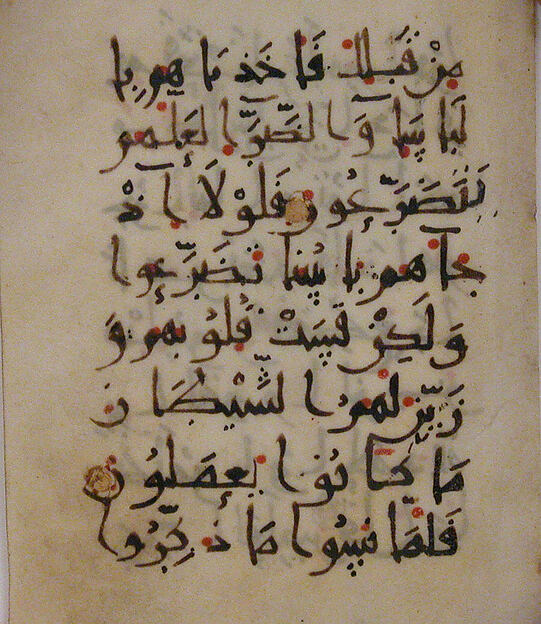 مِنْ قَبلك فَاخذنَاهم بِا
لبَاسَا وَالضَّرَّا لعَلَّهم
يَتَضَرَّعُونَ فَلَوْلَا اذْ
جَاهم بَاسُنا تَضَرَّعوا
وَلَكِنْ قَسَتْ قُلوبهم وَ
زَيَّنَ لَهمُ الشَّيْطَانُ
مَا كَانُوا يعملُونَ
فَلمَّا نَسُوا مَا ذُكِّرُوا